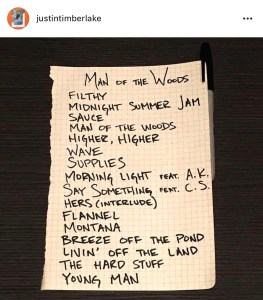 justintimberlake
MAN OF THE WOODS
FILTHY
MIDNIGHT SUMMER JAM
SAUCE
MAN OF THE WOODS
HIGHER, HIGHER
WAVE
SUPPLIES
MORNING LIGHT FEAT. A.K.
SAY SOMETHING FEAT. C.S.
HERS (INTERLUDE)
FLANNEL
MONTANA
BREEZE OFF THE POND
LIVIN' OFF THE LAND
THE HARD STUFF
YOUNG MAN